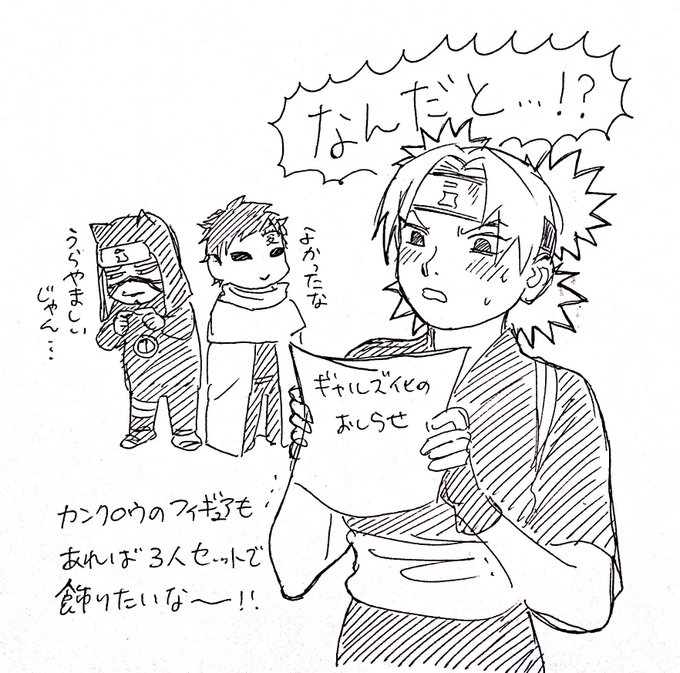 なんだと…!?
よかったな
うらやましい
じゃん…
ギャルズ化の
おしらせ
カンクロウのフィギュアも
あれば3人セットで
飾りたいな〜!!